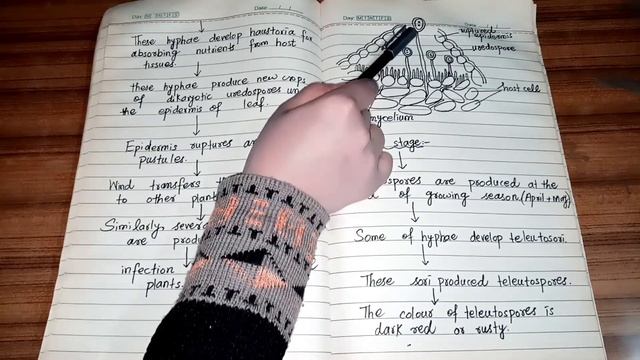 Date
These hyphae develop haustoria for
absorbing nutrients from host
tissues.
these hyphae produce new crops
of dikaryotic uredospores un
the epidermis of leaf.
Epidermis ruptures
pustules.
Wind transfers
to other
Similarly,
are
infection
plants.
Day: M T W T F S
ruptured
epidermis
uredospore
host cell
mycelium
stage:-
are produced at the
of growing season (April + May)
Some of hyphae develop teleutosori.
These sori produced teleutospores.
The colour of teleutospores is
dark red or rusty.